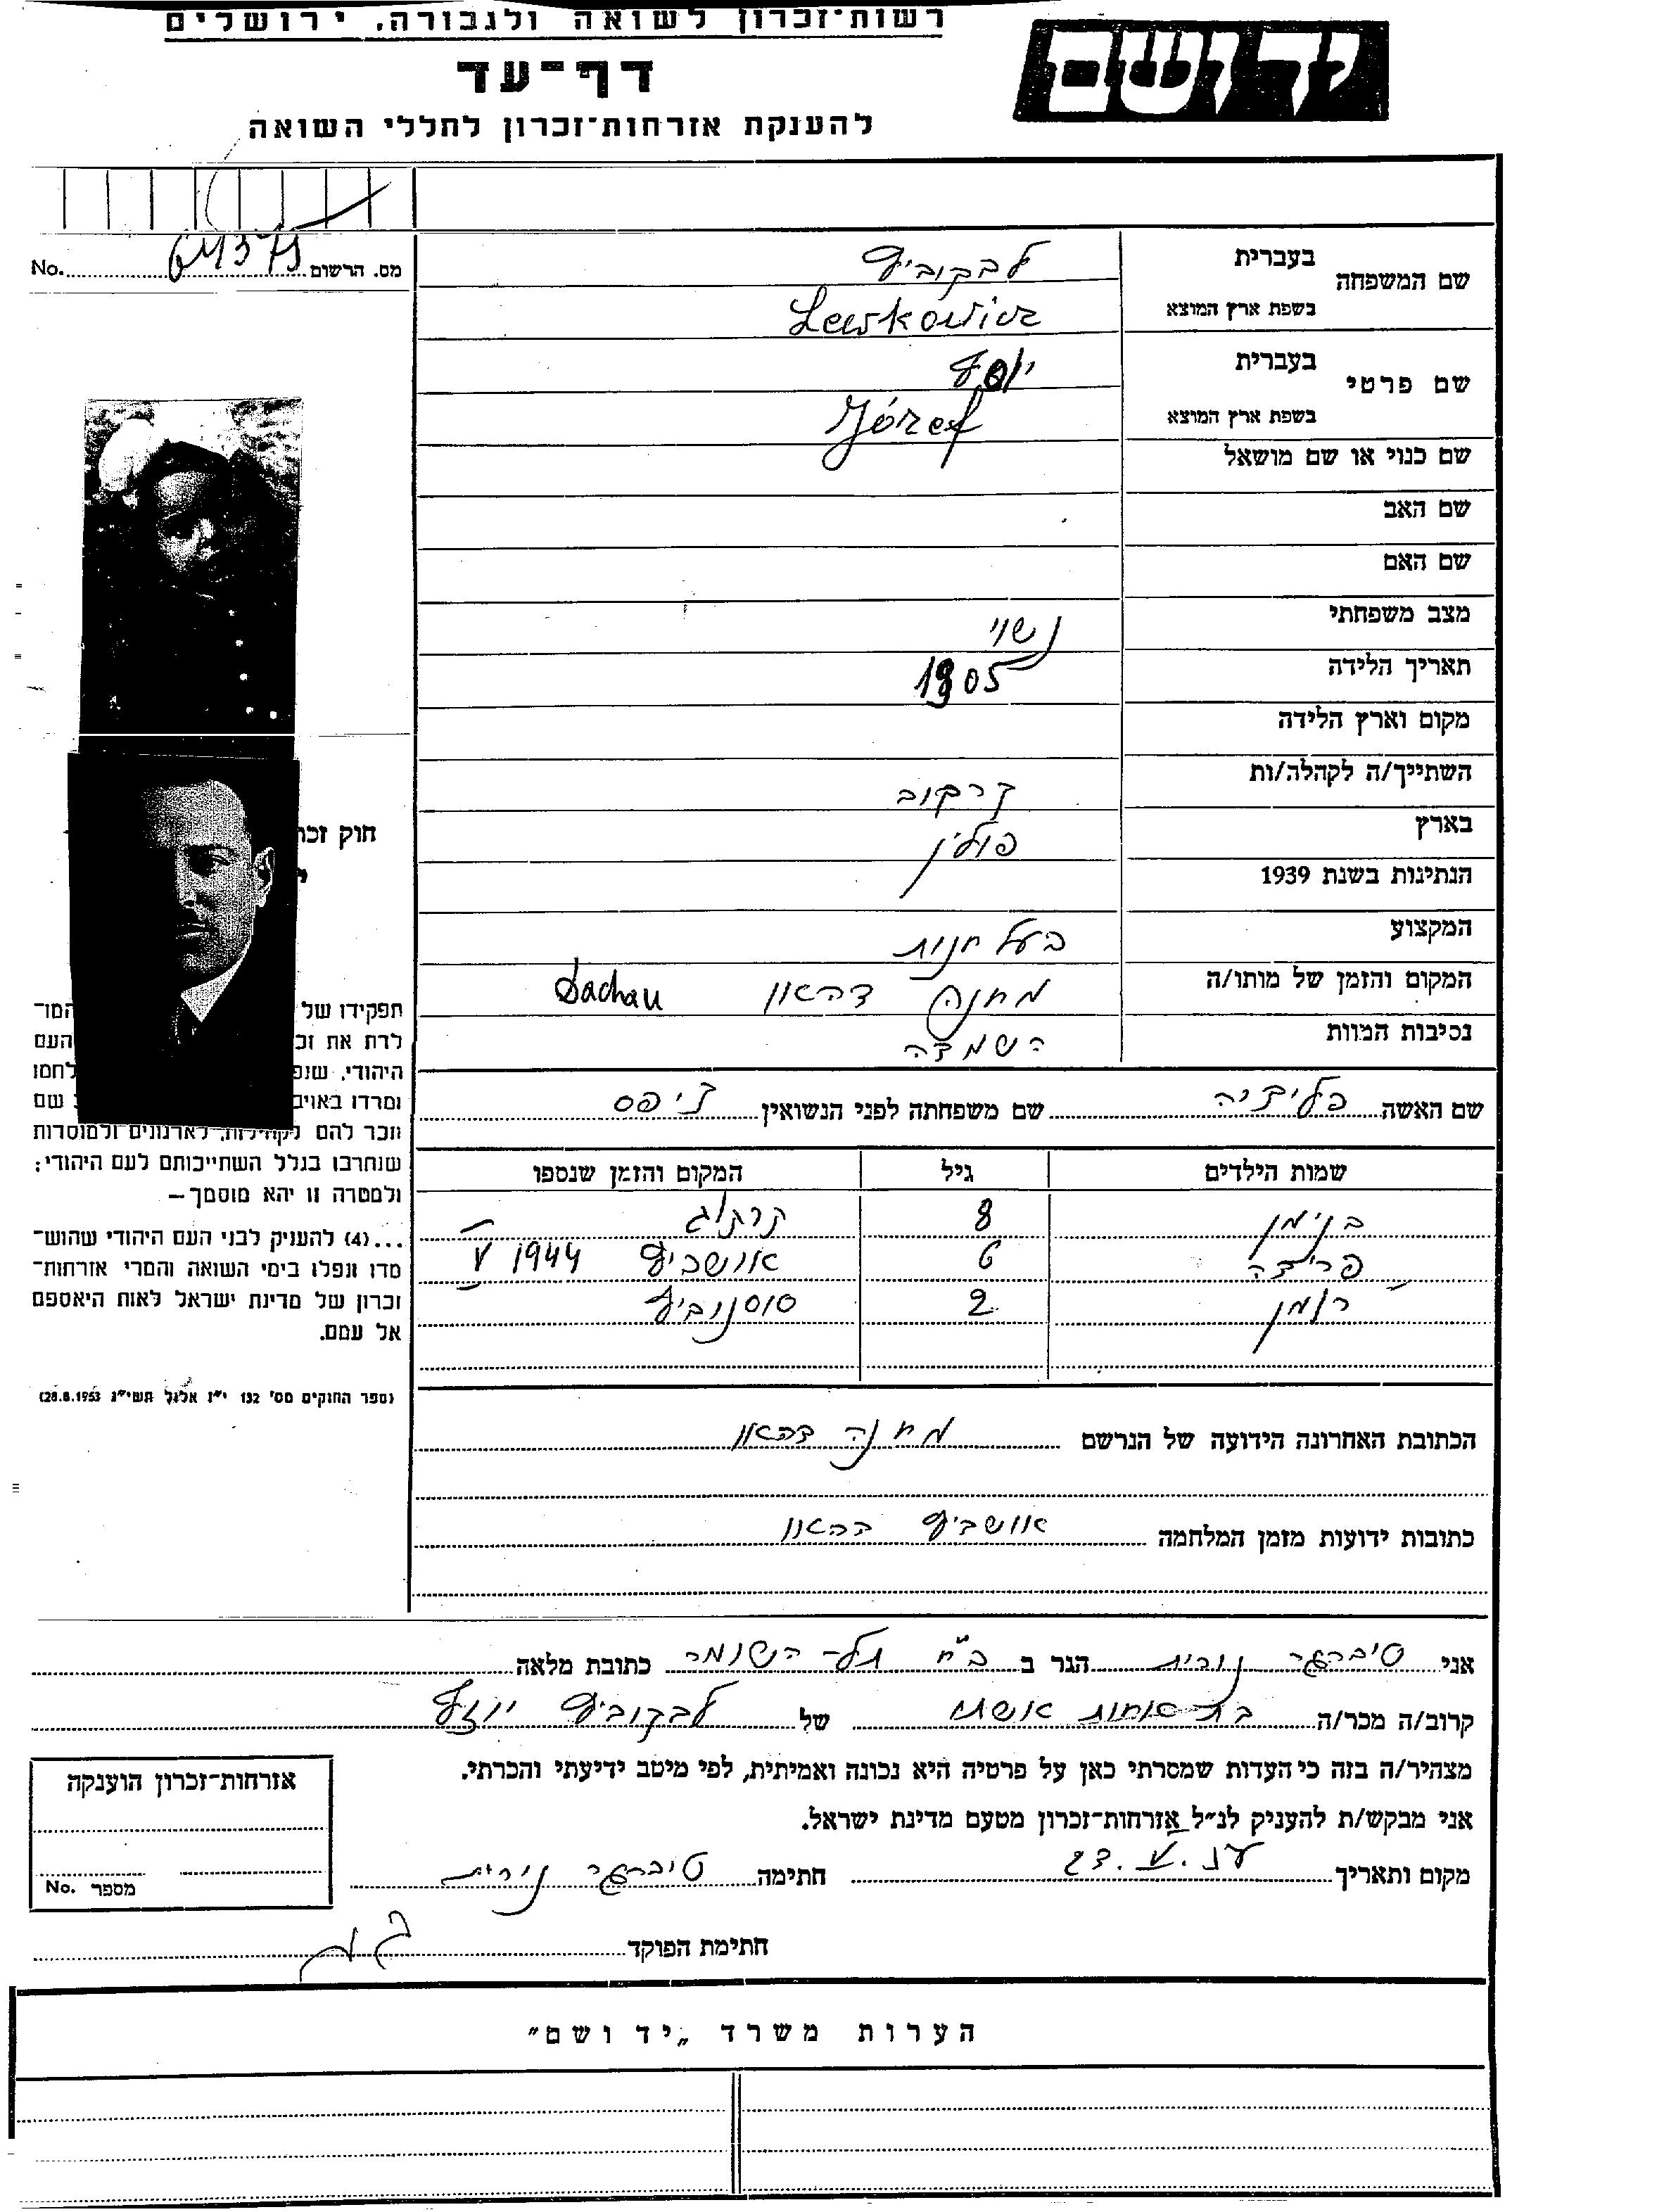 רשות־זכרון לשואה ולגבורה, ירושלים
יד ושם
דף־עד
להענקת אזרחות־זכרון לחללי השואה
No. 64375 מס. הרשום
שם המשפחה
בעברית לבקוביץ
בשפת ארץ המוצא Lewkowicz
שם פרטי
בעברית יוסף
בשפת ארץ המוצא Józef
שם כנוי או שם מושאל
שם האב
שם האם
מצב משפחתי נשוי
תאריך הלידה 1905
מקום וארץ הלידה
השתייך/ה לקהלה/ות קרקוב
בארץ פולין
הנתינות בשנת 1939
המקצוע בעל חנות
המקום והזמן של מותו/ה מחנה דהאו Dachau
נסיבות המוות השמדה
שם האשה שם משפחתה לפני הנשואין
שמות הילדים גיל המקום והזמן שנספו
בנימן 8
פרידה 6 אושביץ V 1944
רומן 2 סוסנוביץ
הכתובת האחרונה הידועה של הנרשם מחנה דהאו
כתובות ידועות מזמן המלחמה אושביץ דהאו
חוק זכר
תפקידו של המו־
לדת את זכ העם
היהודי, שנפ לחמו
ומרדו באויב שם
וזכר להם לקהילות, לארגונים ולמוסדות
שנחרבו בגלל השתייכותם לעם היהודי;
ולמטרה זו יהא מוסמך –
...(4) להעניק לבני העם היהודי שהוש־
מדו ונפלו בימי השואה והמרי אזרחות־
זכרון של מדינת ישראל לאות היאספם
אל עמם.
(ספר החוקים מס' 132 י״ז אלול תשי״ג 28.8.1953)
אני נורית הגר ב ב״ח תל־השומר כתובת מלאה
קרוב/ה מכר/ה בת אחות אשתו של לבקוביץ יוזף
מצהיר/ה בזה כי העדות שמסרתי כאן על פרטיה היא נכונה ואמיתית, לפי מיטב ידיעתי והכרתי.
אני מבקש/ת להעניק לנ״ל אזרחות־זכרון מטעם מדינת ישראל.
מקום ותאריך חתימה
חתימת הפוקד
אזרחות־זכרון הוענקה
No. מספר
הערות משרד „יד ושם״